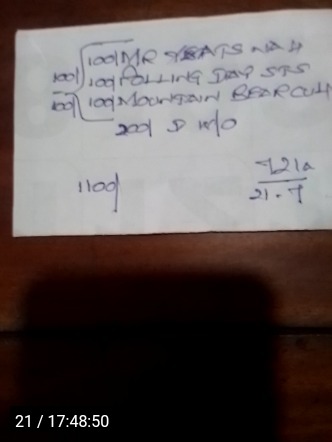 100/ MR YEATS NAH
100/ 100/ POLLING DAY STS
100/ 100/ MOUNTAIN BEAR CUH
200/ D W/O
1100/
721a
21-7
21 / 17:48:50